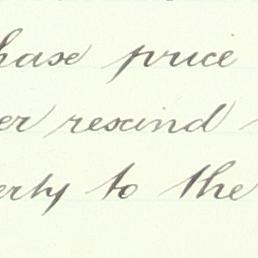 hase price
er rescind
erty to the